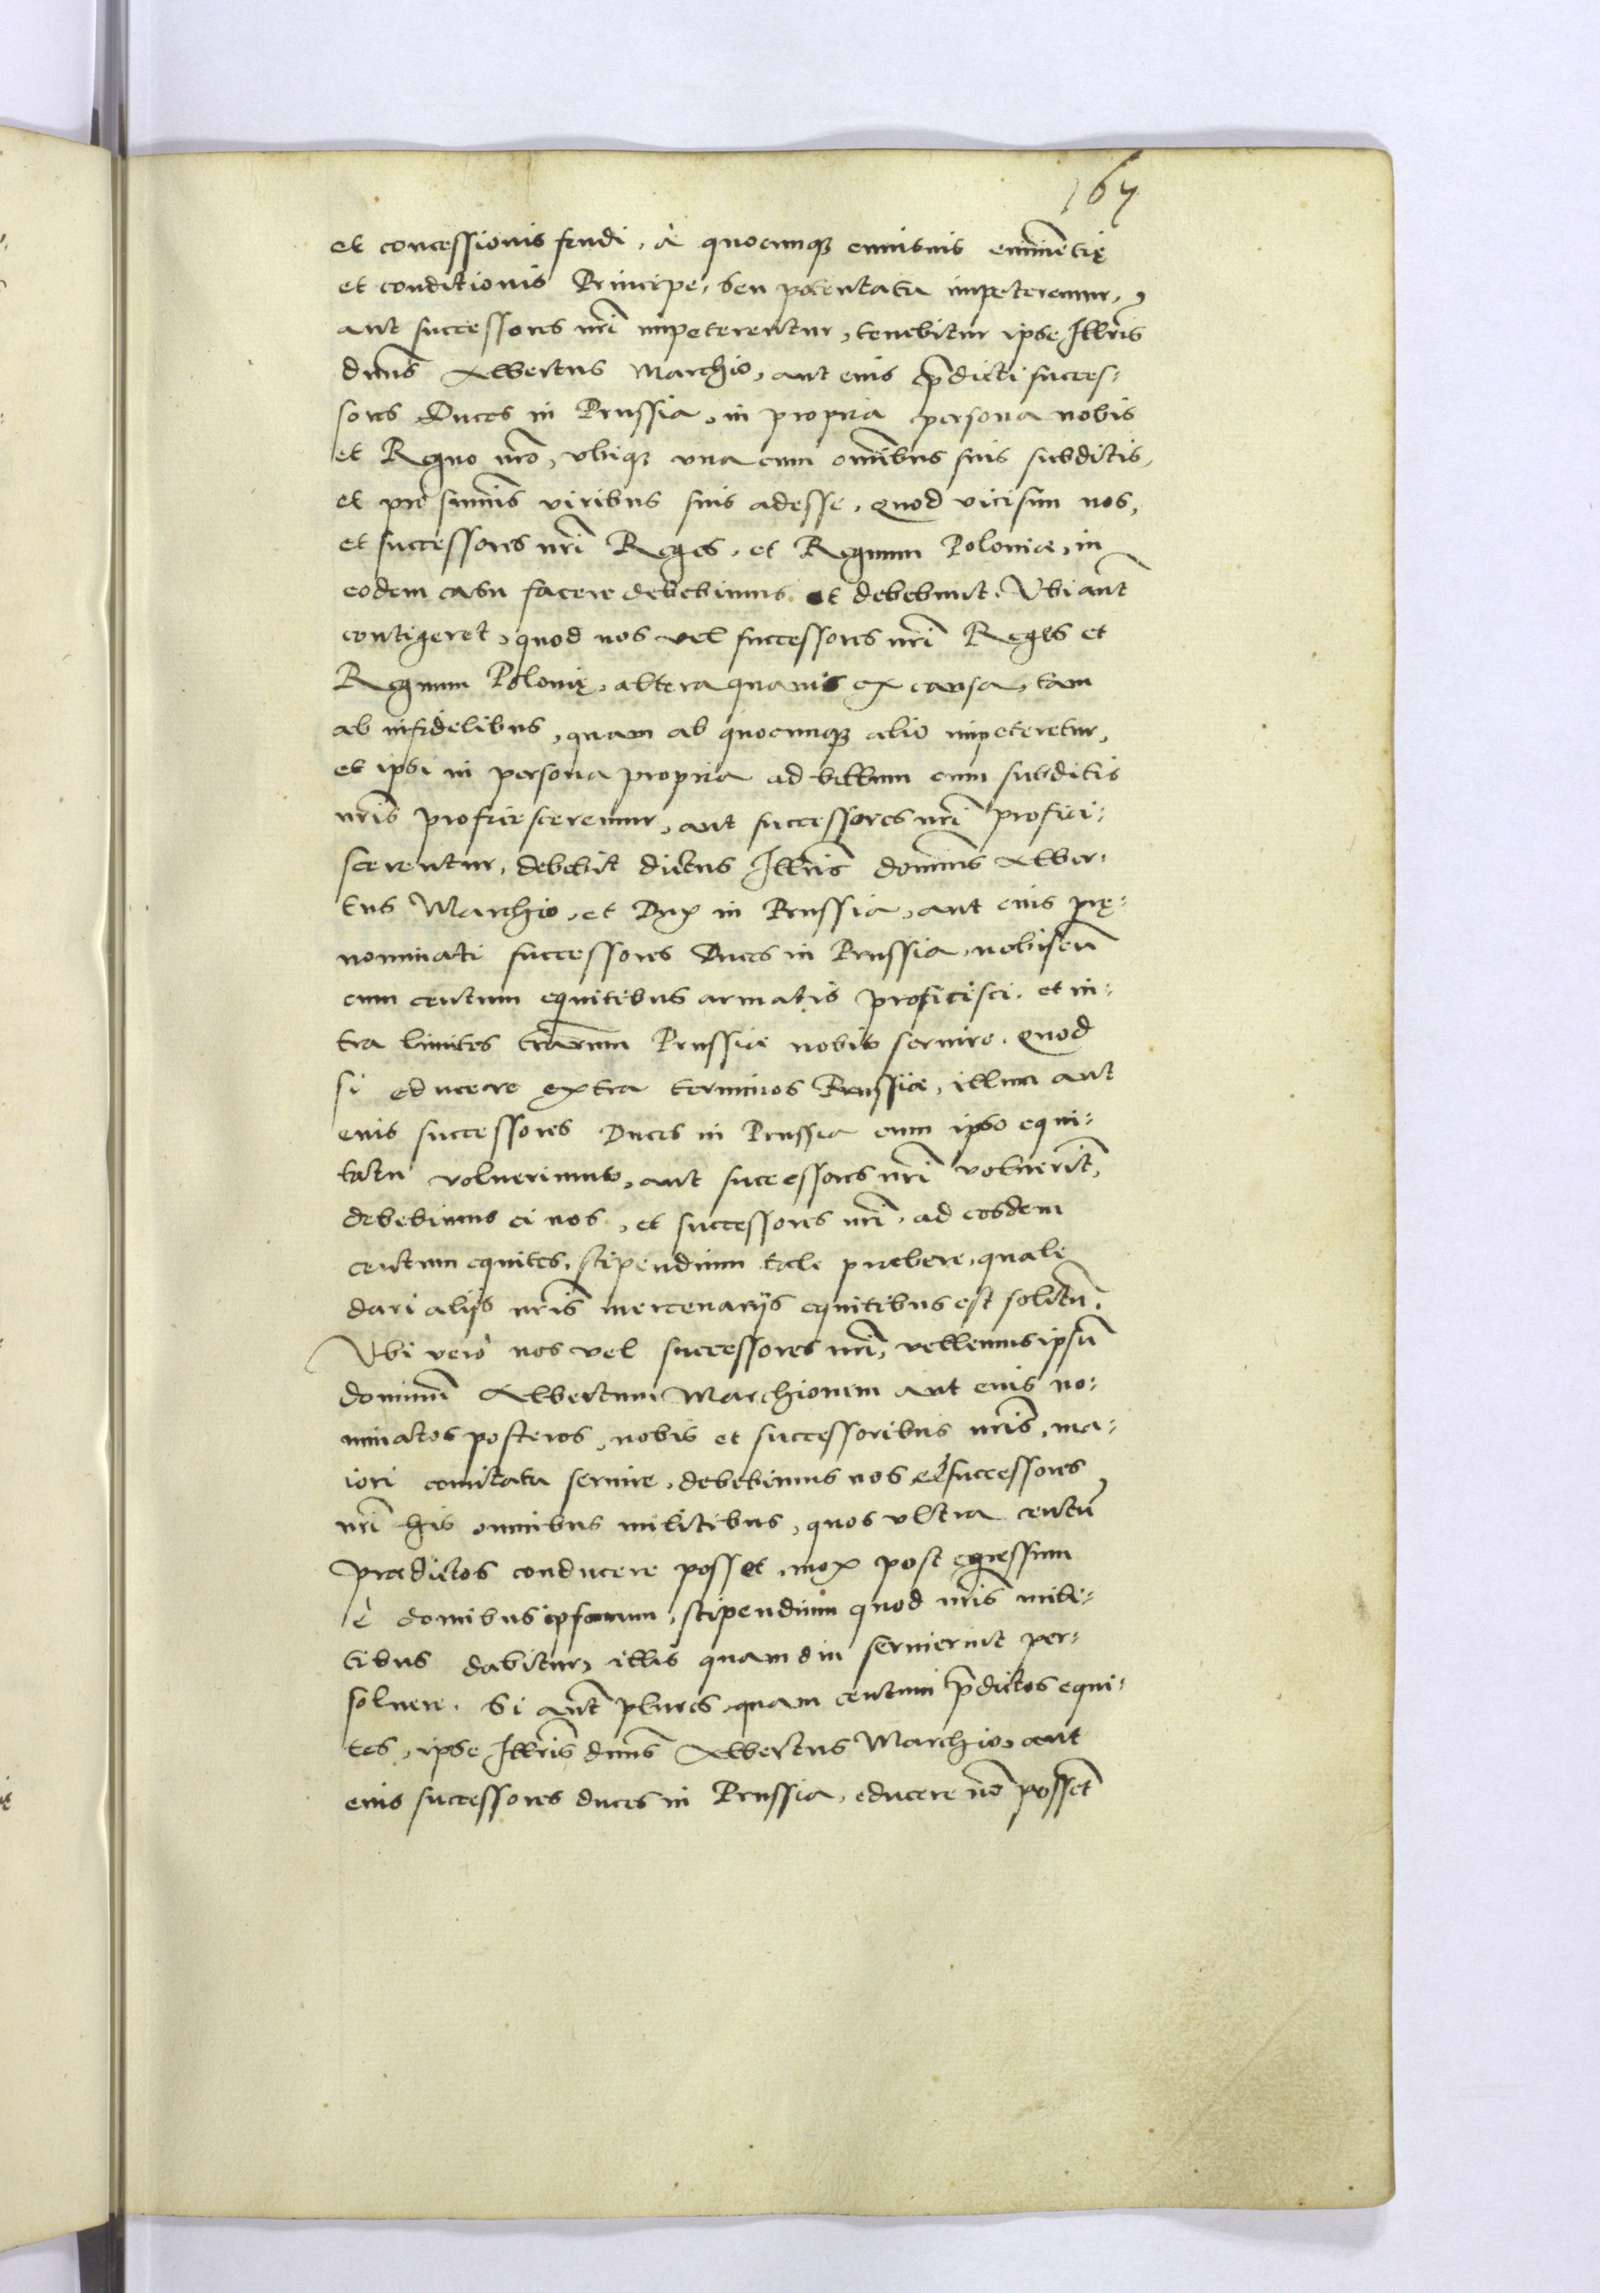 167
et concessionis feudi, à quocunq3 cuiusuis eminẽtię
et conditionis Principe, seu potentatu impeteremur,
aut successores nr̃i impeterentur, tenebitur ipse Illr̃is
dn̄us Albertus Marchio, aut eius p̄dicti succes:
sores Duces in Prussia, in propria persona nobis
et Regno nr̃o, vbiq3 vna cum om̃ibus suis subditis,
et pro sum̃is viribus suis adesse, quod vicisim nos,
et successores nr̃i Reges, et Regnum Poloniæ, in
eodem casu facere debebimus et debebunt. Vbi aut̃
contigeret, quod nos vel successores nr̃i Reges et
Regnum Polonię, altera quauis ex causa, tam
ab infidelibus, quam ab quocunq3 alio impeteretur,
et ipsi in persona propria ad bellum cum subditis
nr̃is proficisceremur, aut successores nr̃i profici:
scerentur, debebit dictus Illr̃is dominus Alber:
tus Marchio, et Dux in Prussia, aut eius pre:
nominati successores Duces in Prussia, nobiscũ
cum centum equitibus armatis proficisci, et in:
tra limites tr̃arum Prussiæ nobis seruire. Quod
si educere extra terminos Prussiæ, illum aut
eius successores Duces in Prussia cum ipso equi:
tatu voluerimus, aut successores nr̃i voluerĩt,
debebimus ei nos, et successores nr̃i, ad eosdem
centum equites, stipendium tale præbere, quale
dari alijs nr̃is mercenarijs equitibus est solitũ.
Vbi verò nos vel successores nr̃i, vellemus ipsũ
dominũ Albertum Marchionem aut eius no:
minatos posteros, nobis et successoribus nr̃is, ma:
iori comitatu seruire, debebimus nos et successores
nr̃i his omnibus militibus, quos vltra centũ
prædictos conducere posset, mox post egressum
è domibus ipsorum, stipendium quod nr̃is mili:
tibus dabitur, illis quamdiu seruierint per:
soluere. Si aut̃ plures quam centum p̄dictos equi:
tes, ipse Illr̃is dn̄us Albertus Marchio, aut
eius successores duces in Prussia, educere nõ possẽt